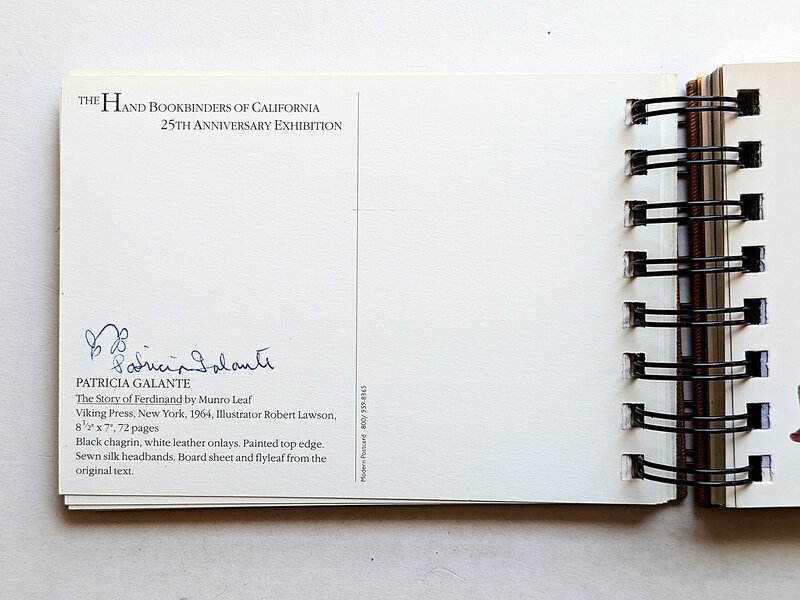 THE HAND BOOKBINDERS OF CALIFORNIA
25TH ANNIVERSARY EXHIBITION
Patricia Galante
PATRICIA GALANTE
The Story of Ferdinand by Munro Leaf
Viking Press, New York, 1964, Illustrator Robert Lawson,
8 1/2" x 7", 72 pages
Black chagrin, white leather onlays. Painted top edge.
Sewn silk headbands. Board sheet and flyleaf from the
original text.
Modern Postcard 800/ 959-8365